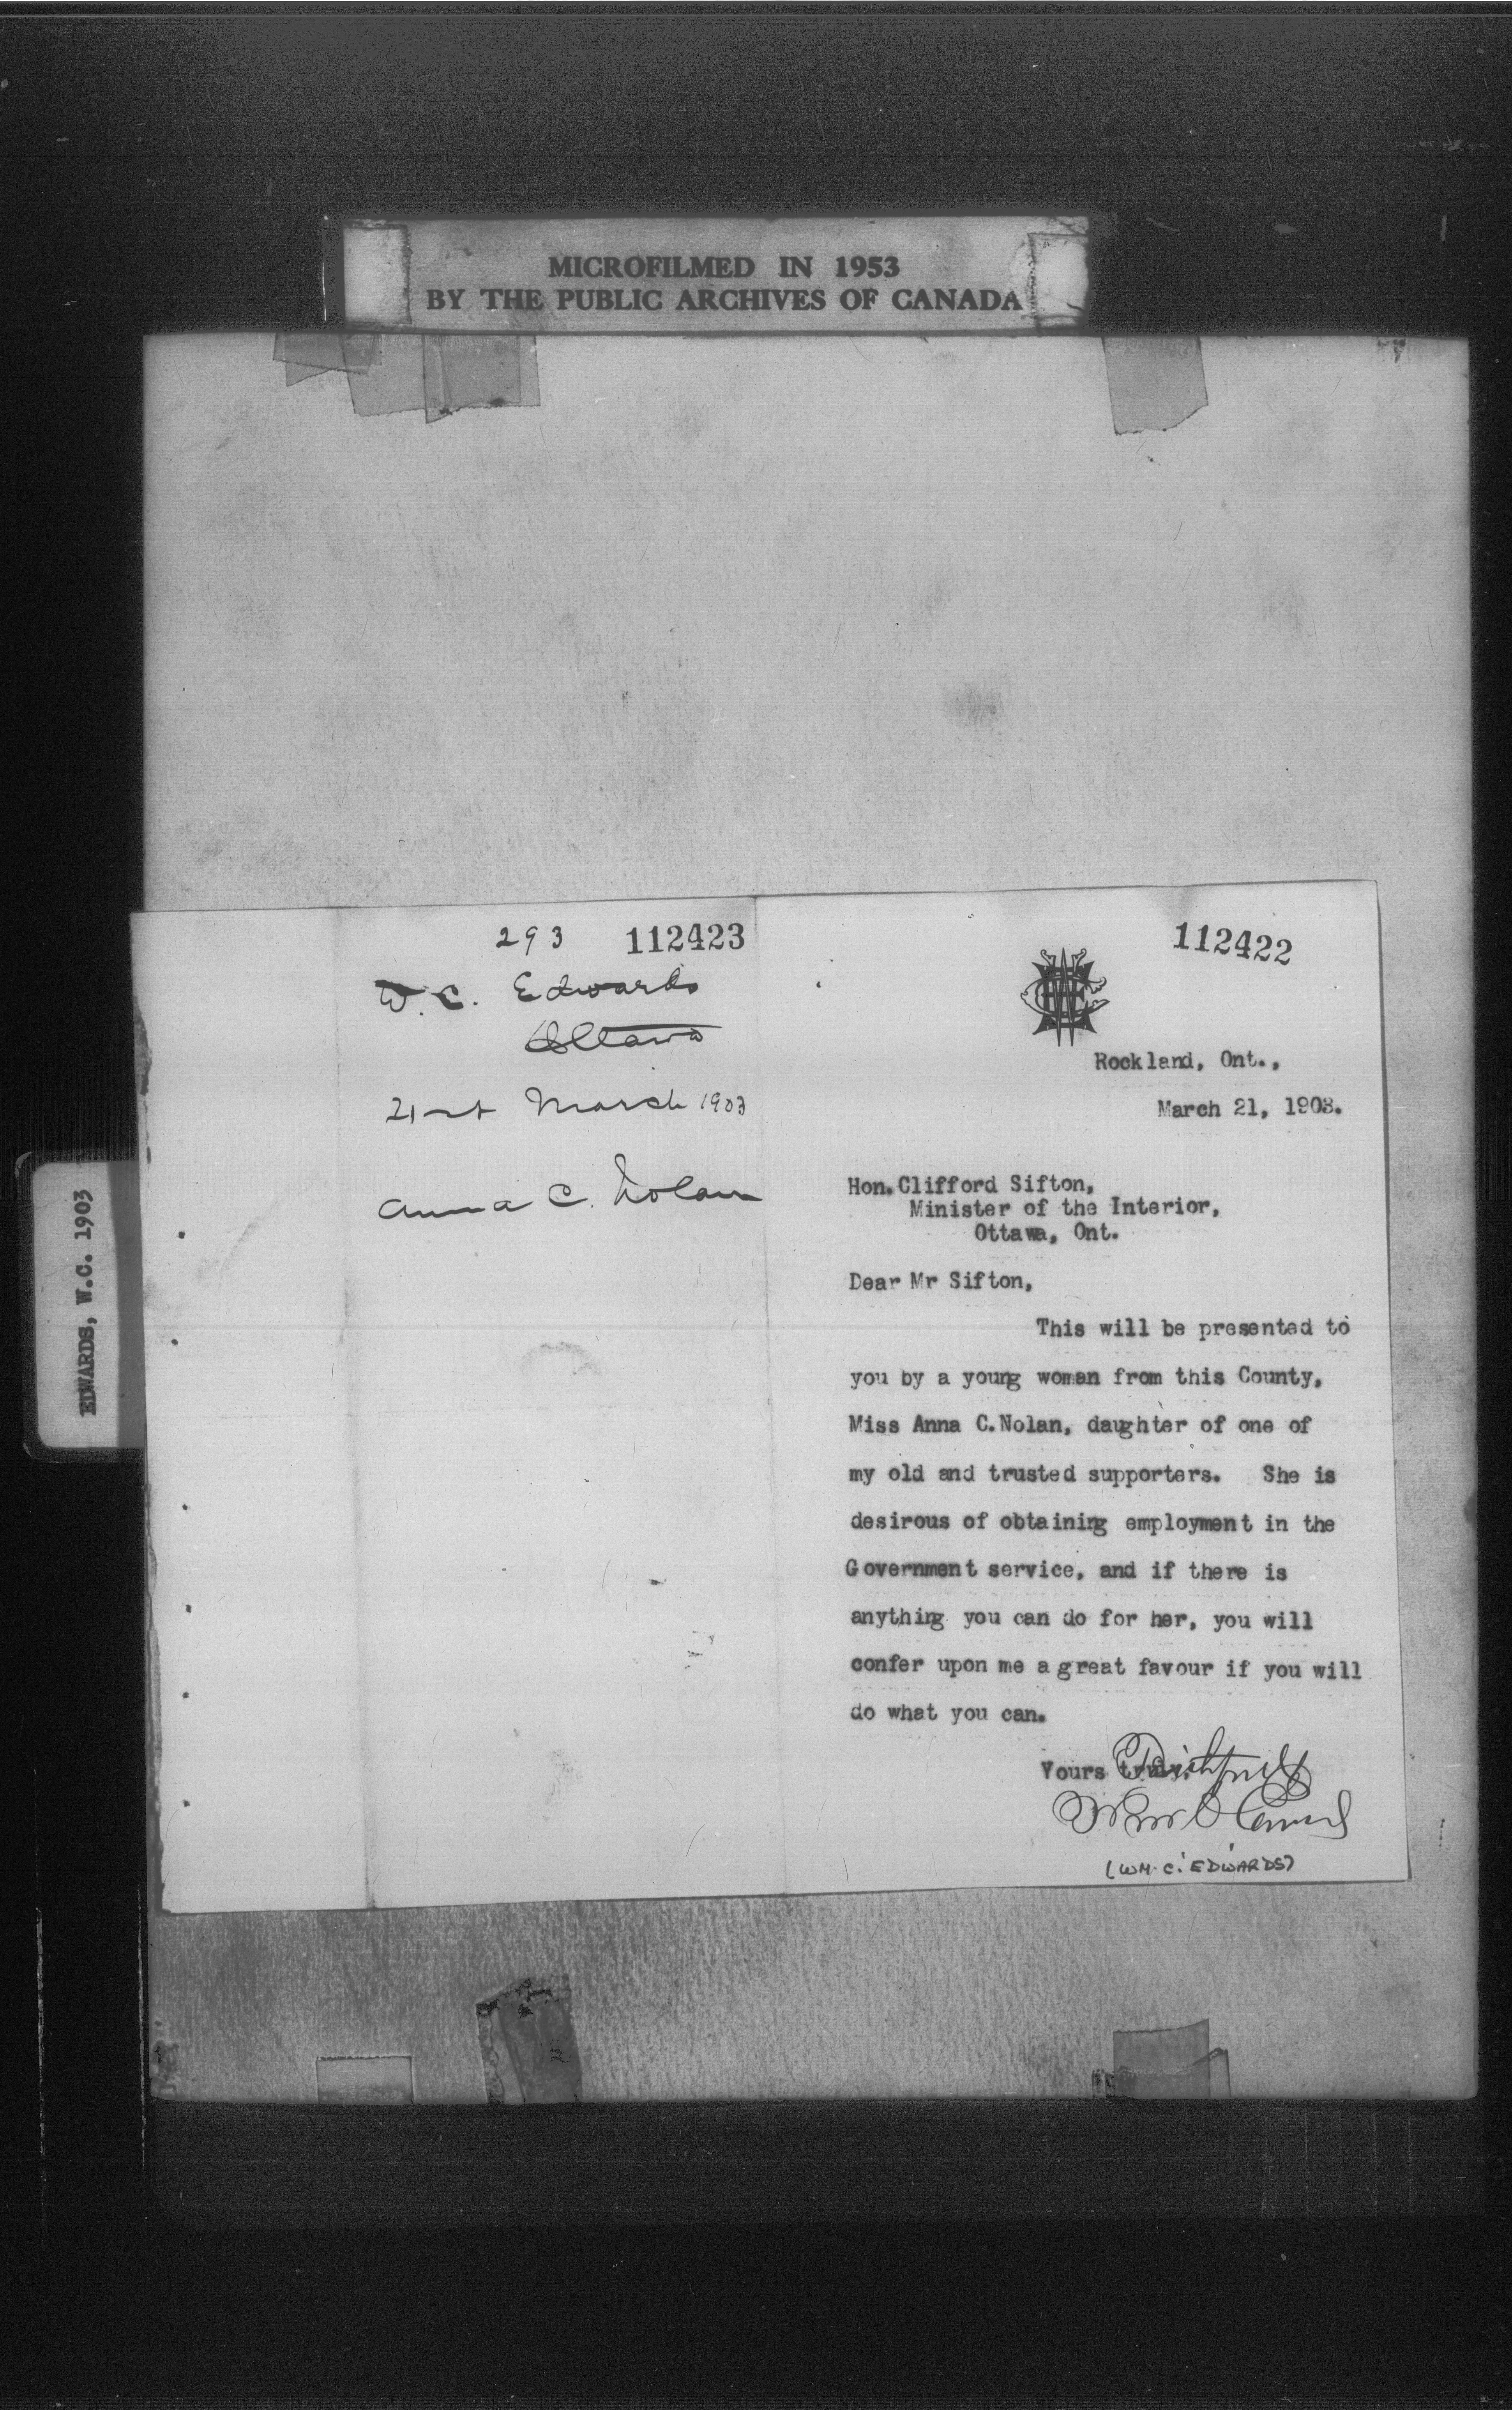 MICROFILMED IN 1953
BY THE PUBLIC ARCHIVES OF CANADA
EDWARDS, W.C. 1903
293 112423
W. C. Edwards
Ottawa
21st March 1903
Anna C. Nolan
112422
Rockland, Ont.,
March 21, 1903.
Hon. Clifford Sifton,
Minister of the Interior,
Ottawa, Ont.
Dear Mr Sifton,
This will be presented to
you by a young woman from this County,
Miss Anna C. Nolan, daughter of one of
my old and trusted supporters. She is
desirous of obtaining employment in the
Government service, and if there is
anything you can do for her, you will
confer upon me a great favour if you will
do what you can.
Yours truly,
Wm C Edwards
(WM. C. EDWARDS)